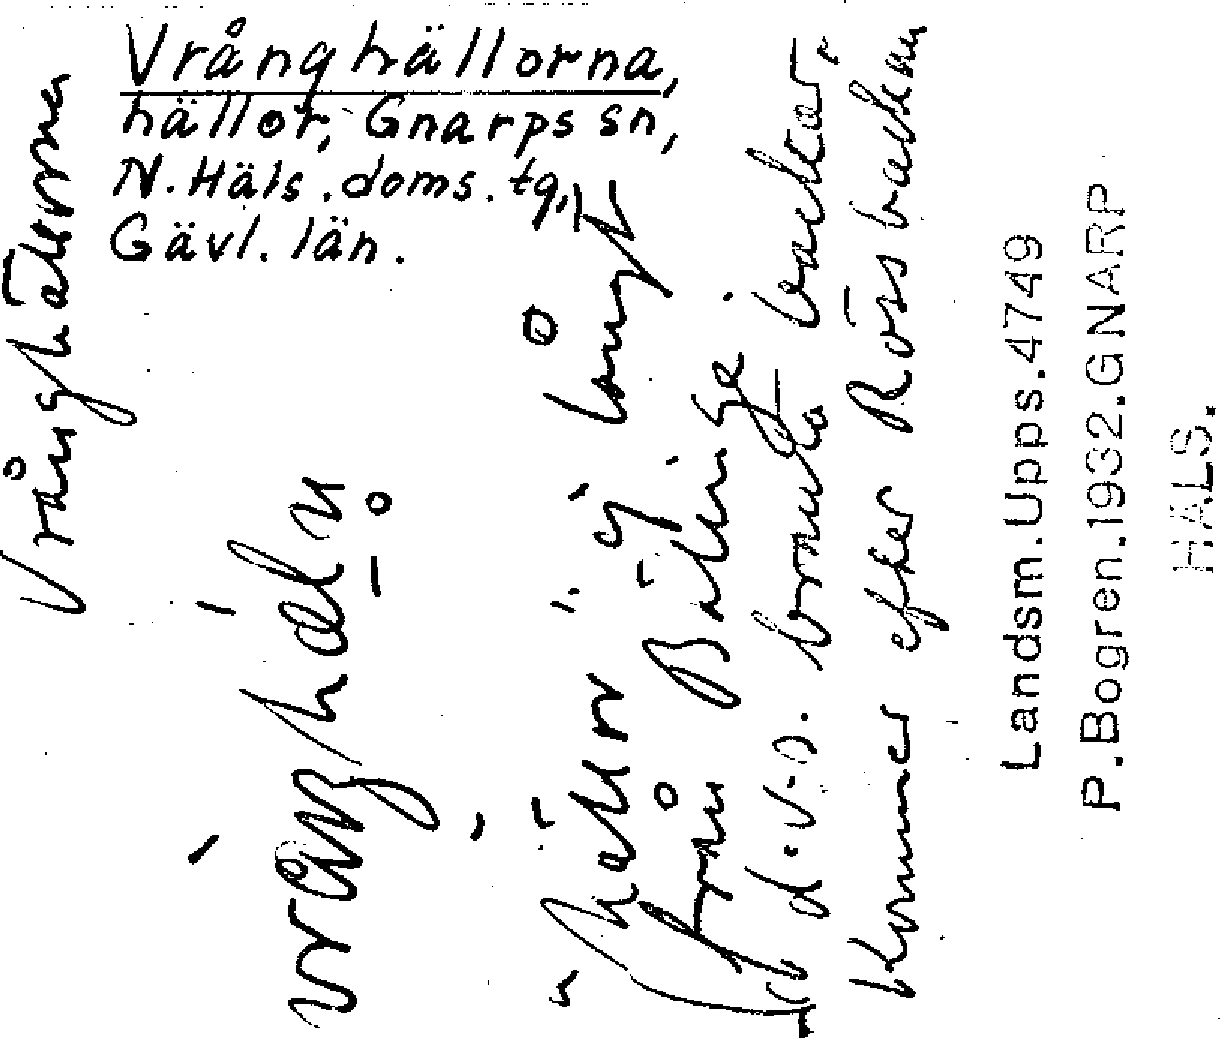 Vrånghällorna,
hällor, Gnarps sn,
N. Häls. doms. tg,
Gävl. län.
Vrånghällorna
"Hällor" ej långt
från Bälinge
d.v.s. branta backar,
kommer efter Rössbacken
Landsm.Upps.4749
P.Bogren.1932.GNARP
HÄLS.